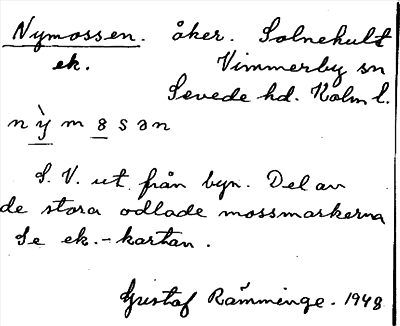 Nymossen. åker. Solnehult
ek. Vimmerby sn
Sevede hd. Kalm l.
n ỳ m 8 s ə n
S. V. ut från byn. Del av
de stora odlade mossmarkerna
Se ek.-kartan.
Gustaf Rämminge. 1948